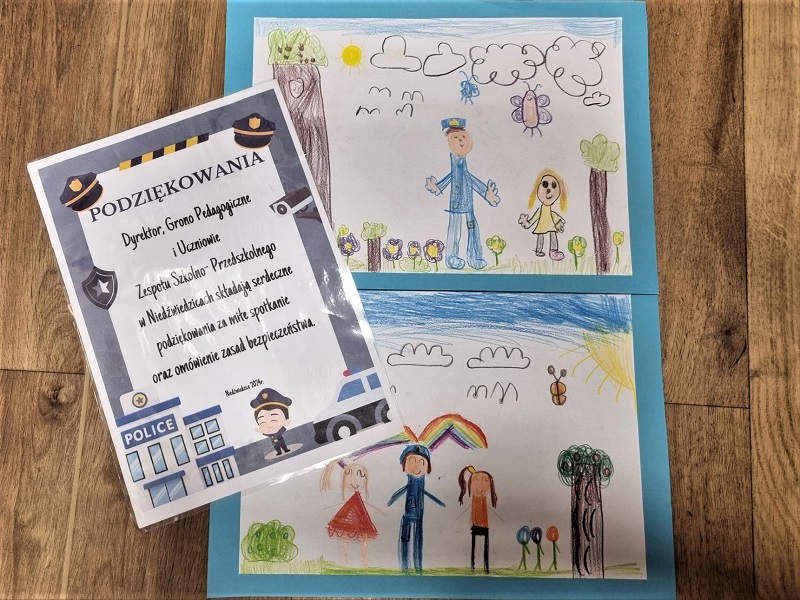 PODZIĘKOWANIA
Dyrektor, Grono Pedagogiczne
i Uczniowie
Zespołu Szkolno-Przedszkolnego
w Niedźwiedzicach składają serdeczne
podziękowania za miłe spotkanie
oraz omówienie zasad bezpieczeństwa.
Niedźwiedzice 2024r.
POLICE